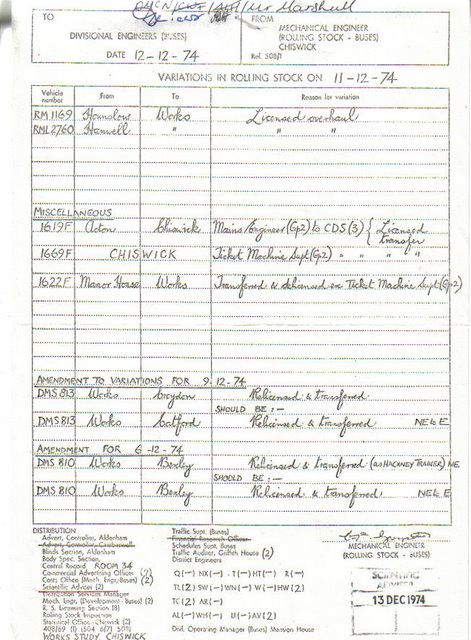 TO
DIVISIONAL ENGINEERS (BUSES)
DATE 12-12-74
FROM
MECHANICAL ENGINEER
(ROLLING STOCK - BUSES)
CHISWICK
Ref. 508/1
VARIATIONS IN ROLLING STOCK ON 11-12-74
Vehicle number From To Reason for variation
RM 1169 Hounslow Works Licensed overhaul
RML 2760 Hanwell " " "
MISCELLANEOUS
1619F Acton Chiswick Mains Engineer (Gp2) to CDS (3) { Licensed transfer
1669F CHISWICK Ticket Machine Supt (Gp2) " " " "
1622F Manor House Works Transferred & delicensed ex Ticket Machine Supt (Gp2)
AMENDMENT TO VARIATIONS FOR 9-12-74
DMS 813 Works Croydon Relicensed & transferred
SHOULD BE :-
DMS 813 Works Catford Relicensed & transferred NE to E
AMENDMENT FOR 6-12-74
DMS 810 Works Bexley Relicensed & transferred (as HACKNEY TRADER) NE
SHOULD BE :-
DMS 810 Works Bexley Relicensed & transferred. NE to E
DISTRIBUTION
Advert. Controller, Aldenham
Blinds Section, Aldenham
Body Spec. Section,
Central Record ROOM 34
Commercial Advertising Officer (7)
Corr. Office (Mech. Engr. Buses) (2)
Scientific Adviser (2)
Distribution Services Manager
Mech. Engr. (Development - Buses) (2)
R. S. Licensing Section (8)
Rolling Stock Inspection
Statistical Office, Chiswick (2)
WORKS STUDY, CHISWICK
Traffic Supt. (Buses)
Financial Research Officer
Schedules Supt. Buses
Traffic Auditor, Griffith House (2)
District Engineers
Q(-) NX(-) T(-) HT(-) R(-)
TL(2) SW(-) WN(-) W(-) HW(2)
TC(2) AR(-)
AL(-) WH(-) U(-) AV(2)
Divl. Operating Manager (Buses) Mansion House
MECHANICAL ENGINEER
(ROLLING STOCK - BUSES)
SCIENTIFIC
ADVISER
13 DEC 1974